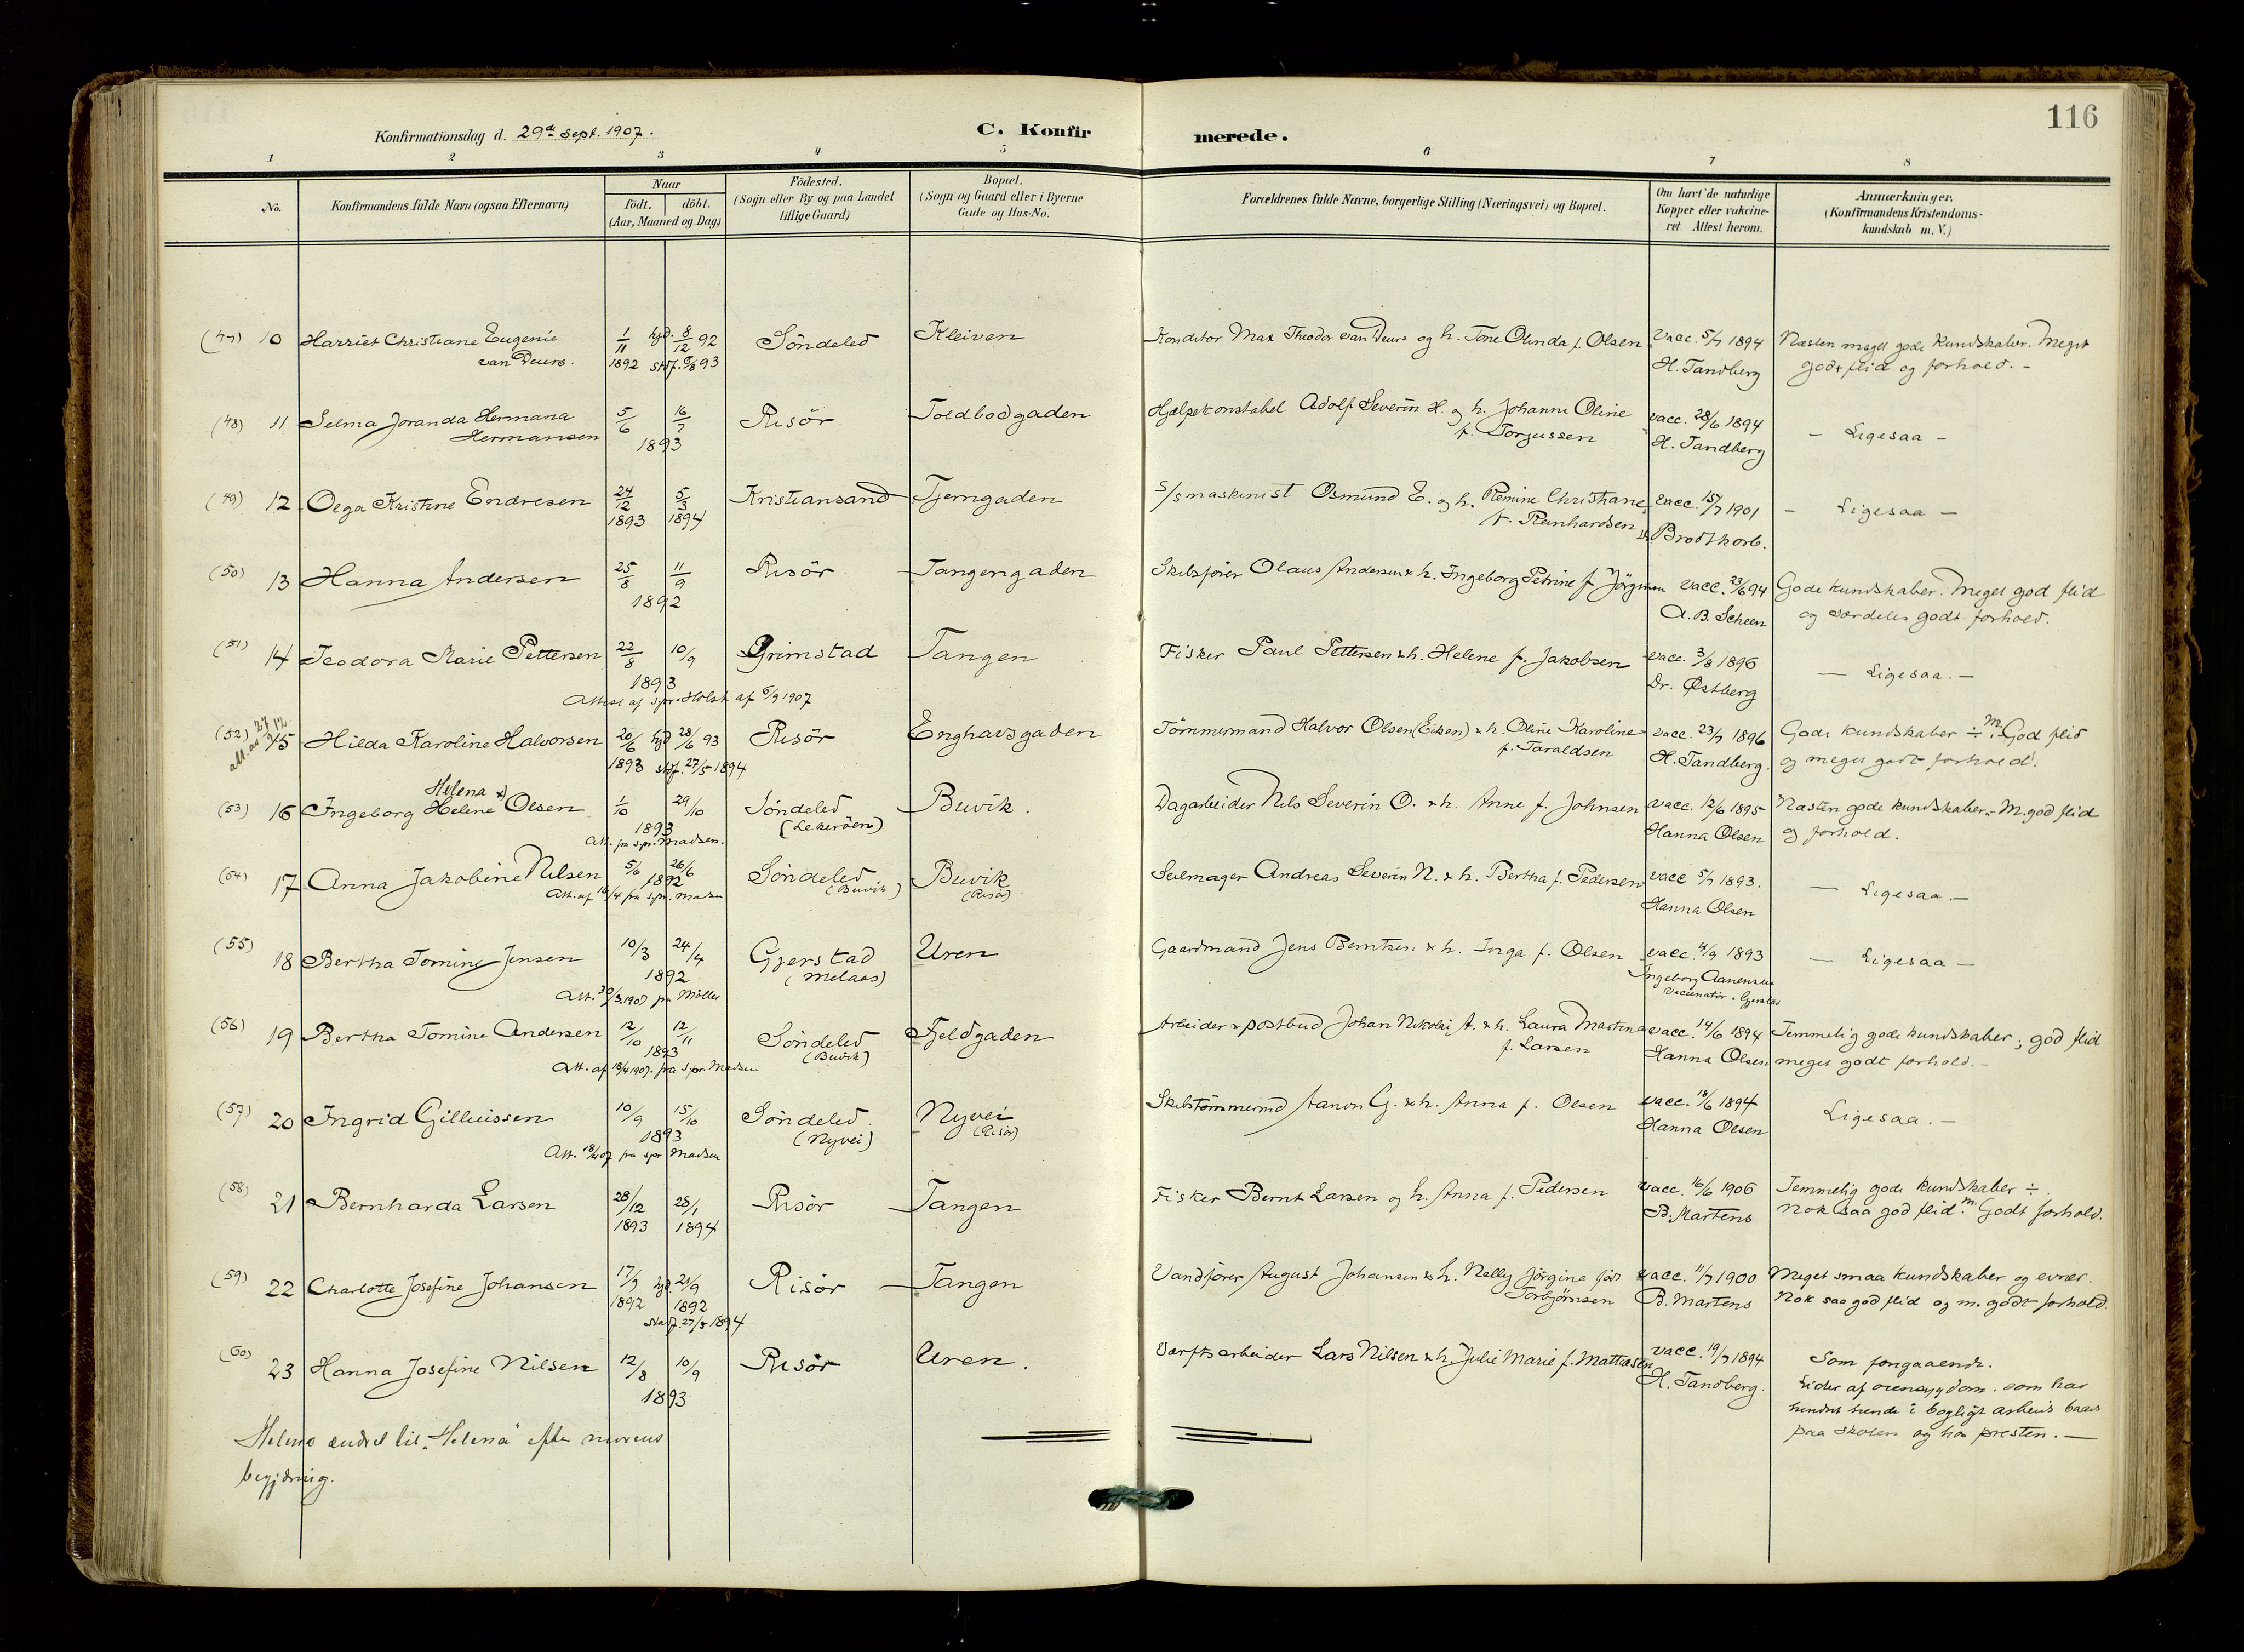 116
Konfirmationsdag d. 29de Sept. 1907.
C. Konfirmerede.
1 2 3 4 5 6 7 8
No.
Konfirmandens fulde Navn (ogsaa Efternavn)
Naar
födt. döbt.
(Aar, Maaned og Dag)
Födested.
(Sogn eller By og paa Landet
tillige Gaard)
Bopæl.
(Sogn og Gaard eller i Byerne
Gade og Hus-No.
Forældrenes fulde Navne, borgerlige Stilling (Næringsvei) og Bopæl.
Om havt de naturlige
Kopper eller vakcine-
ret Attest herom.
Anmærkninger.
(Konfirmandens Kristendoms-
kundskab m. V.)
(47) 10 Harriet Christiane Eugenie 1/11 hjd. 8/12 92 Söndeled Kleiven Konditor Max Theodor van Deurs og h. Tone Olinda f. Olsen vacc. 5/7 1894 Næsten meget gode kundskaber. Meget
van Deurs. 1892 stdf. 6/8 93 H. Tandberg god flid og forhold. -
(48) 11 Selma Joranda Hermana 5/6 16/7 Risör Toldbodgaden Hjælpekonstabel Adolf Severin H. og h. Johanne Oline vacc. 28/6 1894 - Ligesaa -
Hermansen 1893 f. Torjussen H. Tandberg
(49) 12 Olga Kristine Endresen 24/12 5/3 Kristiansand Tjerngaden S/s maskinist Osmund E. og h. Remine Christiane vacc. 15/7 1901 - Ligesaa -
1893 1894 f. Reinhardsen Brodtkorb.
(50) 13 Hanna Andersen 25/8 11/9 Risör Tangengaden Skibsförer Olaus Andersen & h. Ingeborg Petrine f. Jörgensen vacc. 23/6 94 Gode kundskaber. Meget god flid
1892 A. B. Scheen og særdeles godt forhold.
(51) 14 Teodora Marie Pettersen 22/8 10/9 Grimstad Tangen Fisker Paul Pettersen & h. Helene f. Jakobsen vacc. 3/8 1896 - Ligesaa. -
1893 Dr. Østberg
Attest af spr. Holst af 6/9 1907
(52) 15 Hilda Karoline Halvorsen 20/6 hjd 28/6 93 Risör Enghavsgaden Tömmermand Halvor Olsen (Eiken) & h. Oline Karoline vacc. 23/7 1896 Gode kundskaber ÷. M. God flid
1893 stdf. 27/5 1894 f. Taraldsen H. Tandberg. og meget godt forhold.
Helena x)
(53) 16 Ingeborg Helene Olsen 1/10 29/10 Söndeled Buvik. Dagarbeider Nils Severin O. & h. Anne f. Johnsen vacc. 12/6 1895 Næsten gode kundskaber. M. god flid
1893 (Lekeröen) Hanna Olsen og forhold.
Att. fra spr. Madsen.
(54) 17 Anna Jakobine Nilsen 5/6 26/6 Söndeled Buvik Seilmager Andreas Severin N. & h. Bertha f. Pedersen vacc 5/7 1893. - Ligesaa. -
1892 (Buvik) (Risör) Hanna Olsen
Att. af 16/4 fra spr. Madsen
(55) 18 Bertha Tomine Jensen 10/3 24/4 Gjerstad Uren Gaardmand Jens Berntsen & h. Inga f. Olsen vacc. 4/9 1893 - Ligesaa -
1892 (Melaas) Ingeborg Aanensen
Att. 30/3 1907 fra Möller Vaccinatør i Gjerstad
(56) 19 Bertha Tomine Andersen 12/10 12/11 Söndeled Fjeldgaden Arbeider & postbud Johan Nikolai A. & h. Laura Martine vacc. 14/6 1894 Temmelig gode kundskaber; god flid
1893 (Buvik) f. Larsen Hanna Olsen meget godt forhold. -
Att. af 18/4 1907. fra spr. Madsen
(57) 20 Ingrid Gilluissen 10/9 15/10 Söndeled Nyvei Skibstömmermd Aanon G. & h. Anna f. Olsen vacc. 18/6 1894 Ligesaa. -
1893 (Nyvei) (Risör) Hanna Olsen
Att. 18/4 07 fra spr Madsen
(58) 21 Bernharda Larsen 28/12 28/1 Risör Tangen Fisker Bernt Larsen og h. Anna f. Pedersen vacc. 16/6 1906 Temmelig gode kundskaber ÷.
1893 1894 B. Martens Nok saa god flid. M. Godt forhold.
(59) 22 Charlotte Josefine Johansen 17/9 hjd. 21/9 Risör Tangen Vandförer August Johansen & h. Nelly Jörgine föd vacc. 11/7 1900 Meget smaa kundskaber og evner.
1892 1892 Torbjörnsen B. Martens Nok saa god flid og m. godt forhold.
stadf. 27/5 1894
(60) 23 Hanna Josefine Nilsen 12/8 10/9 Risör Uren. Værftsarbeider Lars Nilsen & h. Julie Marie f. Mattiasen vacc. 19/7 1894 Som foregaaende.
1893 H. Tandberg. Lider af ørensygdom, som har
hindret hende i bogligt arbeid baade
paa skolen og hos presten. -
Helene ændret til "Helena" efter morens
begjæring.